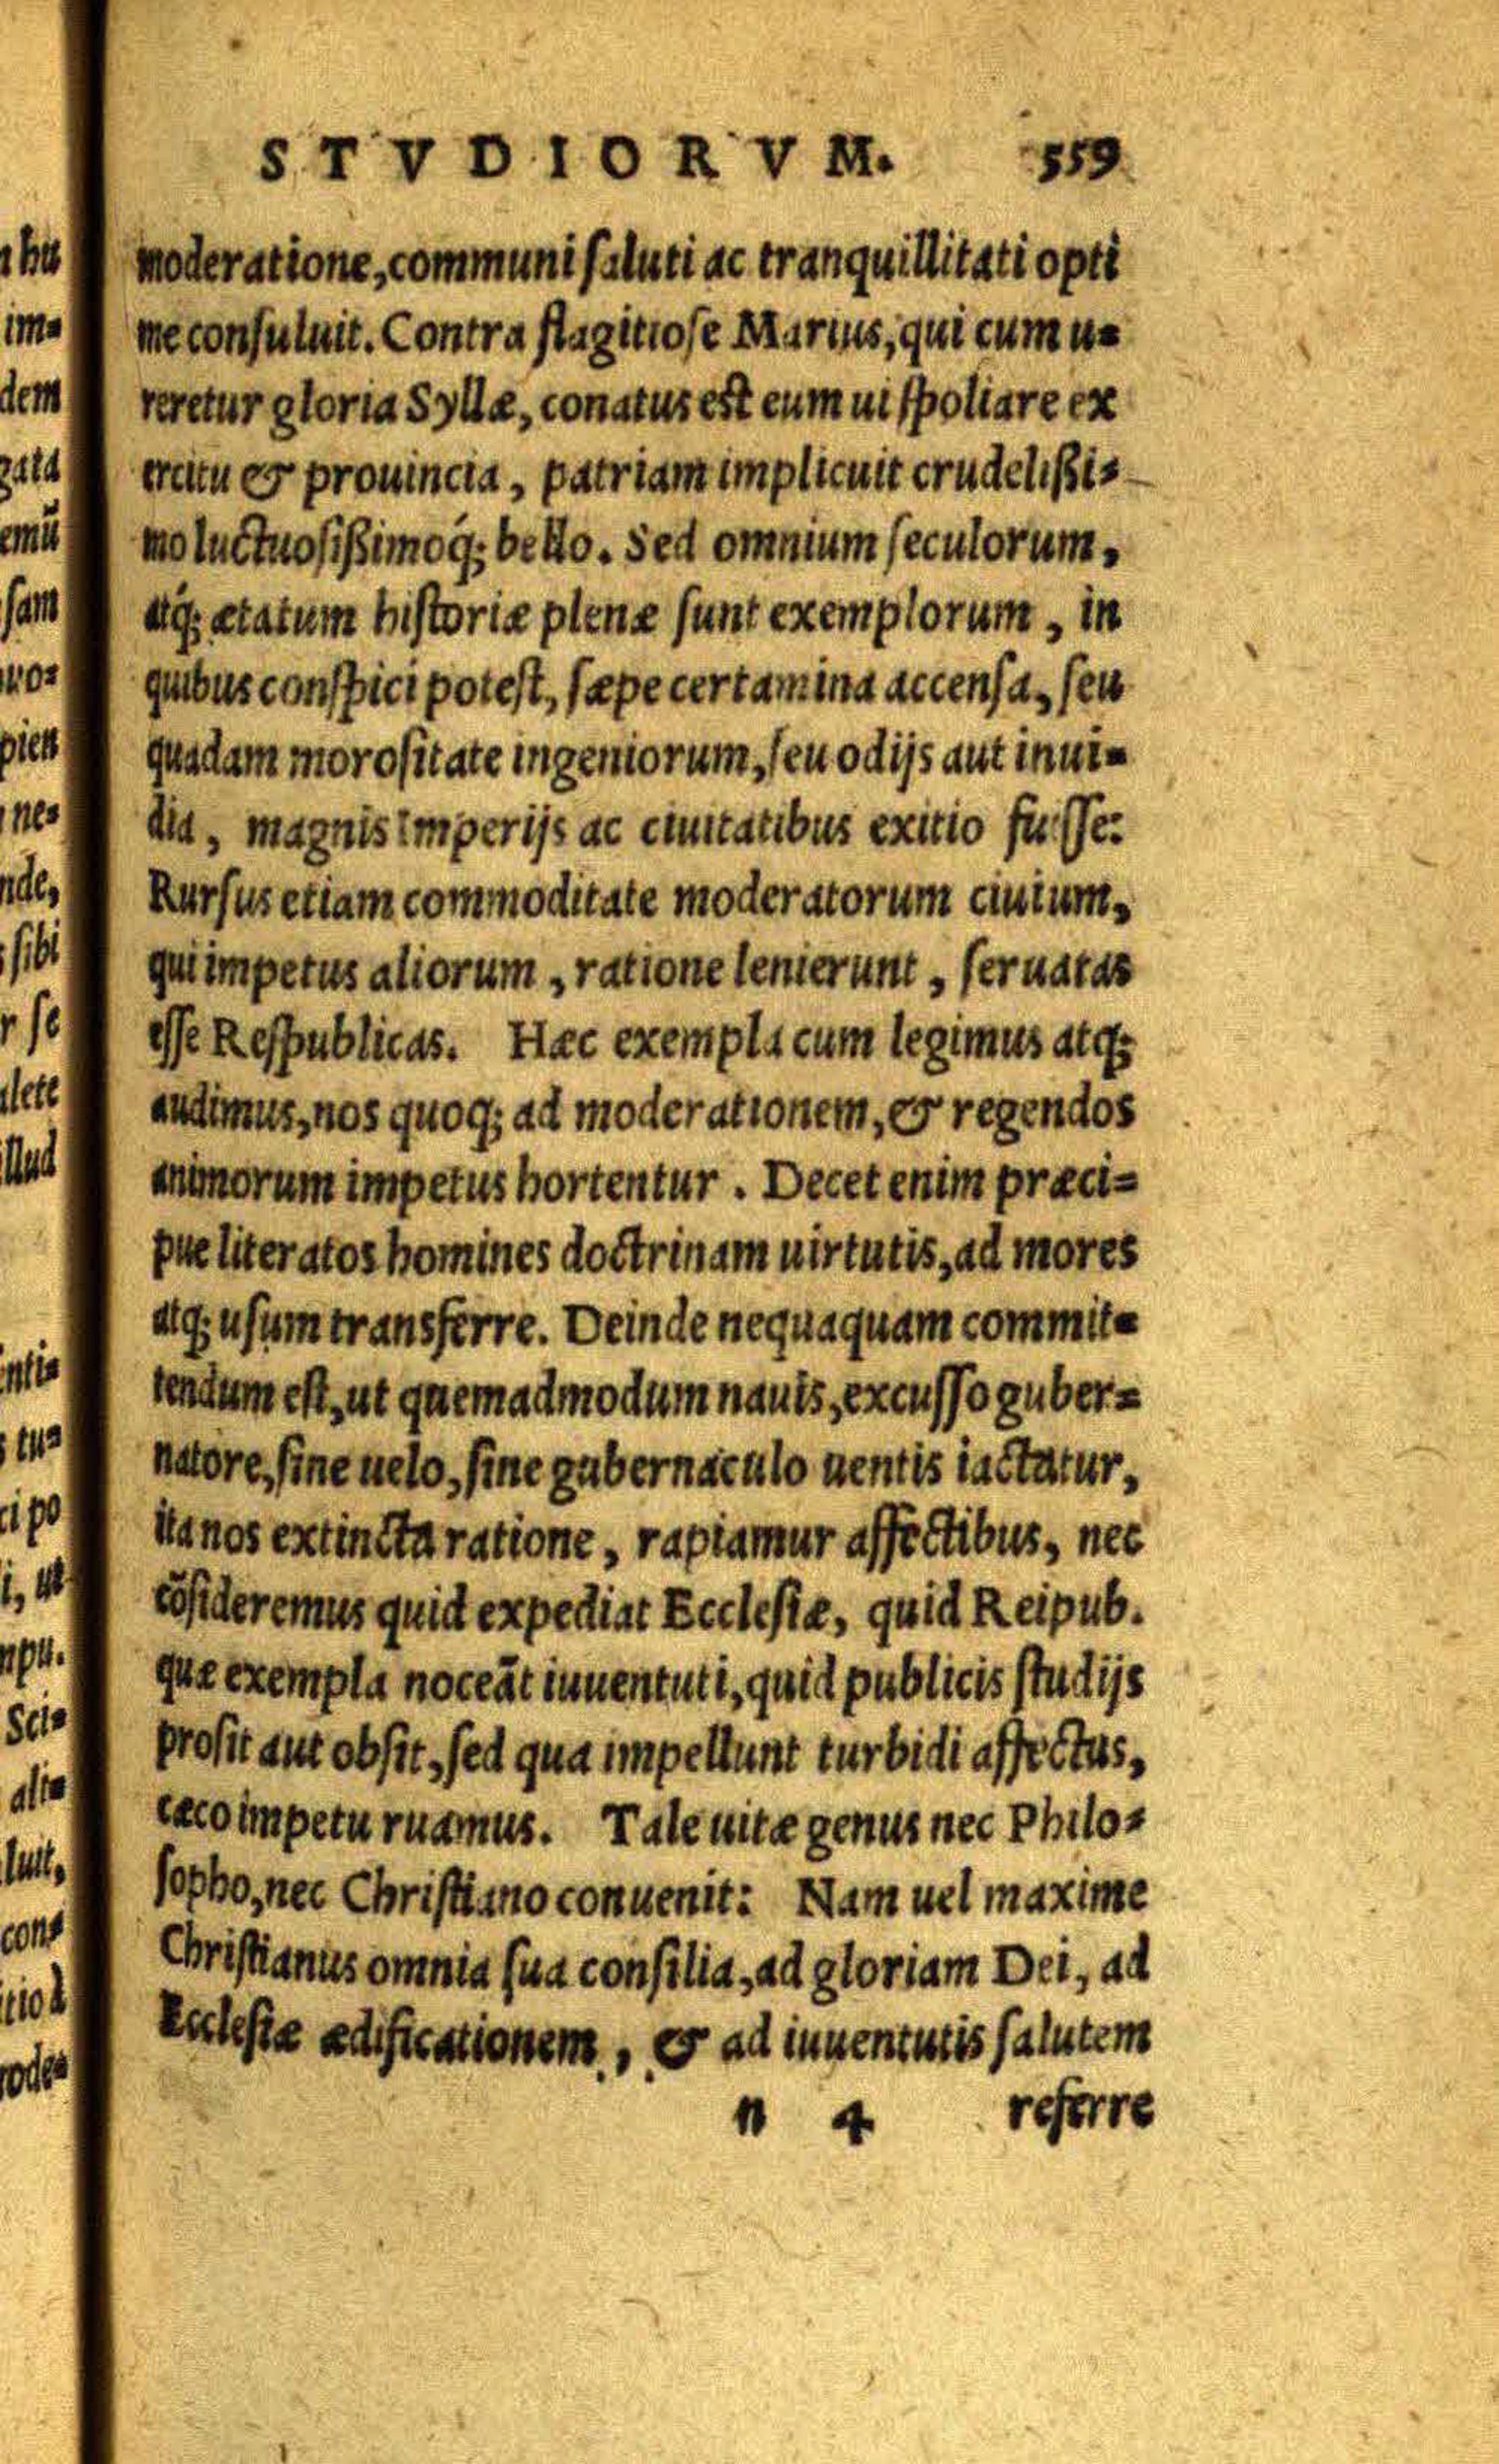 STVDIORVM. 559
moderatione, communi saluti ac tranquillitati opti
me consuluit. Contra flagitiose Marius, qui cum u=
reretur gloria Syllæ, conatus est eum ui spoliare ex
ercitu & prouincia, patriam implicuit crudelißi=
mo luctuosißimoq́; bello. Sed omnium seculorum,
atq́; ætatum historiæ plenæ sunt exemplorum, in
quibus conspici potest, sæpe certamina accensa, seu
quadam morositate ingeniorum, seu odijs aut inui=
dia, magnis Imperijs ac ciuitatibus exitio fuisse:
Rursus etiam commoditate moderatorum ciuium,
qui impetus aliorum, ratione lenierunt, seruatas
esse Respublicas. Hæc exempla cum legimus atq;
audimus, nos quoq; ad moderationem, & regendos
animorum impetus hortentur. Decet enim præci=
pue literatos homines doctrinam uirtutis, ad mores
atq; usum transferre. Deinde nequaquam commit=
tendum est, ut quemadmodum nauis, excusso guber=
natore, sine uelo, sine gubernaculo uentis iactatur,
ita nos extincta ratione, rapiamur affectibus, nec
cōsideremus quid expediat Ecclesiæ, quid Reipub.
quæ exempla noceāt iuuentuti, quid publicis studijs
prosit aut obsit, sed qua impellunt turbidi affectus,
cæco impetu ruamus. Tale uitæ genus nec Philo=
sopho, nec Christiano conuenit: Nam uel maxime
Christianus omnia sua consilia, ad gloriam Dei, ad
Ecclesiæ ædificationem, & ad iuuentutis salutem
n 4 referre